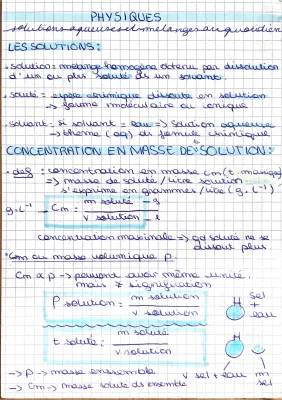 PHYSIQUES
solutions aqueuses et mélanges au quotidien
LES SOLUTIONS:
. solution: mélange homogène obtenu par dissolution
d'un ou plus soluté ds un solvant.
. soluté = espèce chimique dissoute en solution
→ forme moléculaire ou ionique
. solvant: si solvant = eau → solution aqueuse
→ thème (aq) ds formule chimique
CONCENTRATION EN MASSE DE SOLUTION:
. def: concentration en masse Cm (t massique)
⇒ masse de soluté / litre solution
s'exprime en grammes / litre (g.L⁻¹)
g.L⁻¹ - Cm = m soluté - g
v solution - L
concentration maximale → qd soluté ne se
dissout plus
Cm ou masse volumique ρ.
Cm ≠ ρ → peuvent avoir même unité.
mais ≠ signification
ρ solution = m solution
v solution
H sel
+
eau
t soluté = m soluté
v solution
→ ρ → masse ensemble
v sel + eau m
sel
→ Cm → masse soluté ds ensemble